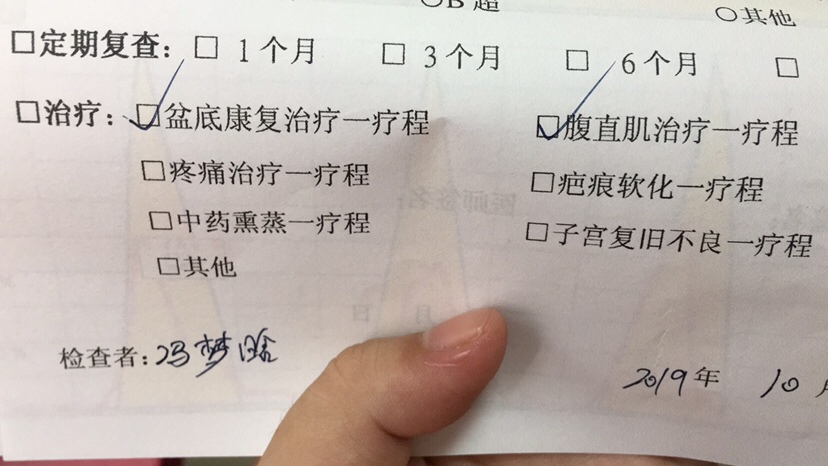 ○B 超 ○其他
□定期复查：□ 1 个月 □ 3 个月 □ 6 个月 □
□治疗：☑盆底康复治疗一疗程 ☑腹直肌治疗一疗程
□疼痛治疗一疗程 □疤痕软化一疗程
□中药熏蒸一疗程 □子宫复旧不良一疗程
□其他
检查者：冯梦晗
2019年 10月